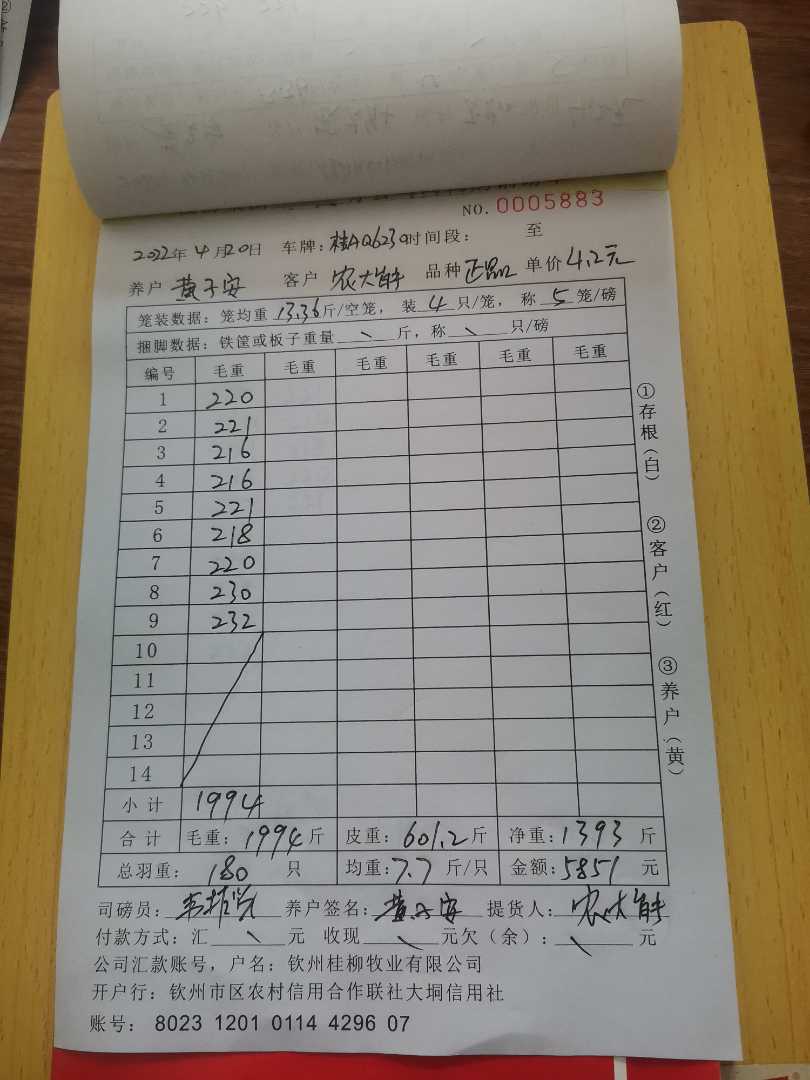 NO. 0005883
2022年 4月20日 车牌：桂AQ6230时间段： 至
养户 黄子安 客户 农大能 品种 正品 单价 4.2元
笼装数据：笼均重 13.36斤/空笼，装 4 只/笼，称 5 笼/磅
捆脚数据：铁筐或板子重量 \ 斤，称 \ 只/磅
编号 毛重 毛重 毛重 毛重 毛重 毛重
1 220
2 221
3 216
4 216
5 221
6 218
7 220
8 230
9 232
10
11
12
13
14
小计 1994
合计 毛重：1994斤 皮重：601.2斤 净重：1393 斤
总羽重： 180 只 均重：7.7 斤/只 金额：5851 元
司磅员： 养户签名：黄子安 提货人：农大能
付款方式：汇 \ 元 收现 \ 元欠（余）： \ 元
公司汇款账号，户名：钦州桂柳牧业有限公司
开户行：钦州市区农村信用合作联社大垌信用社
账号：8023 1201 0114 4296 07
①存根（白） ②客户（红） ③养户（黄）